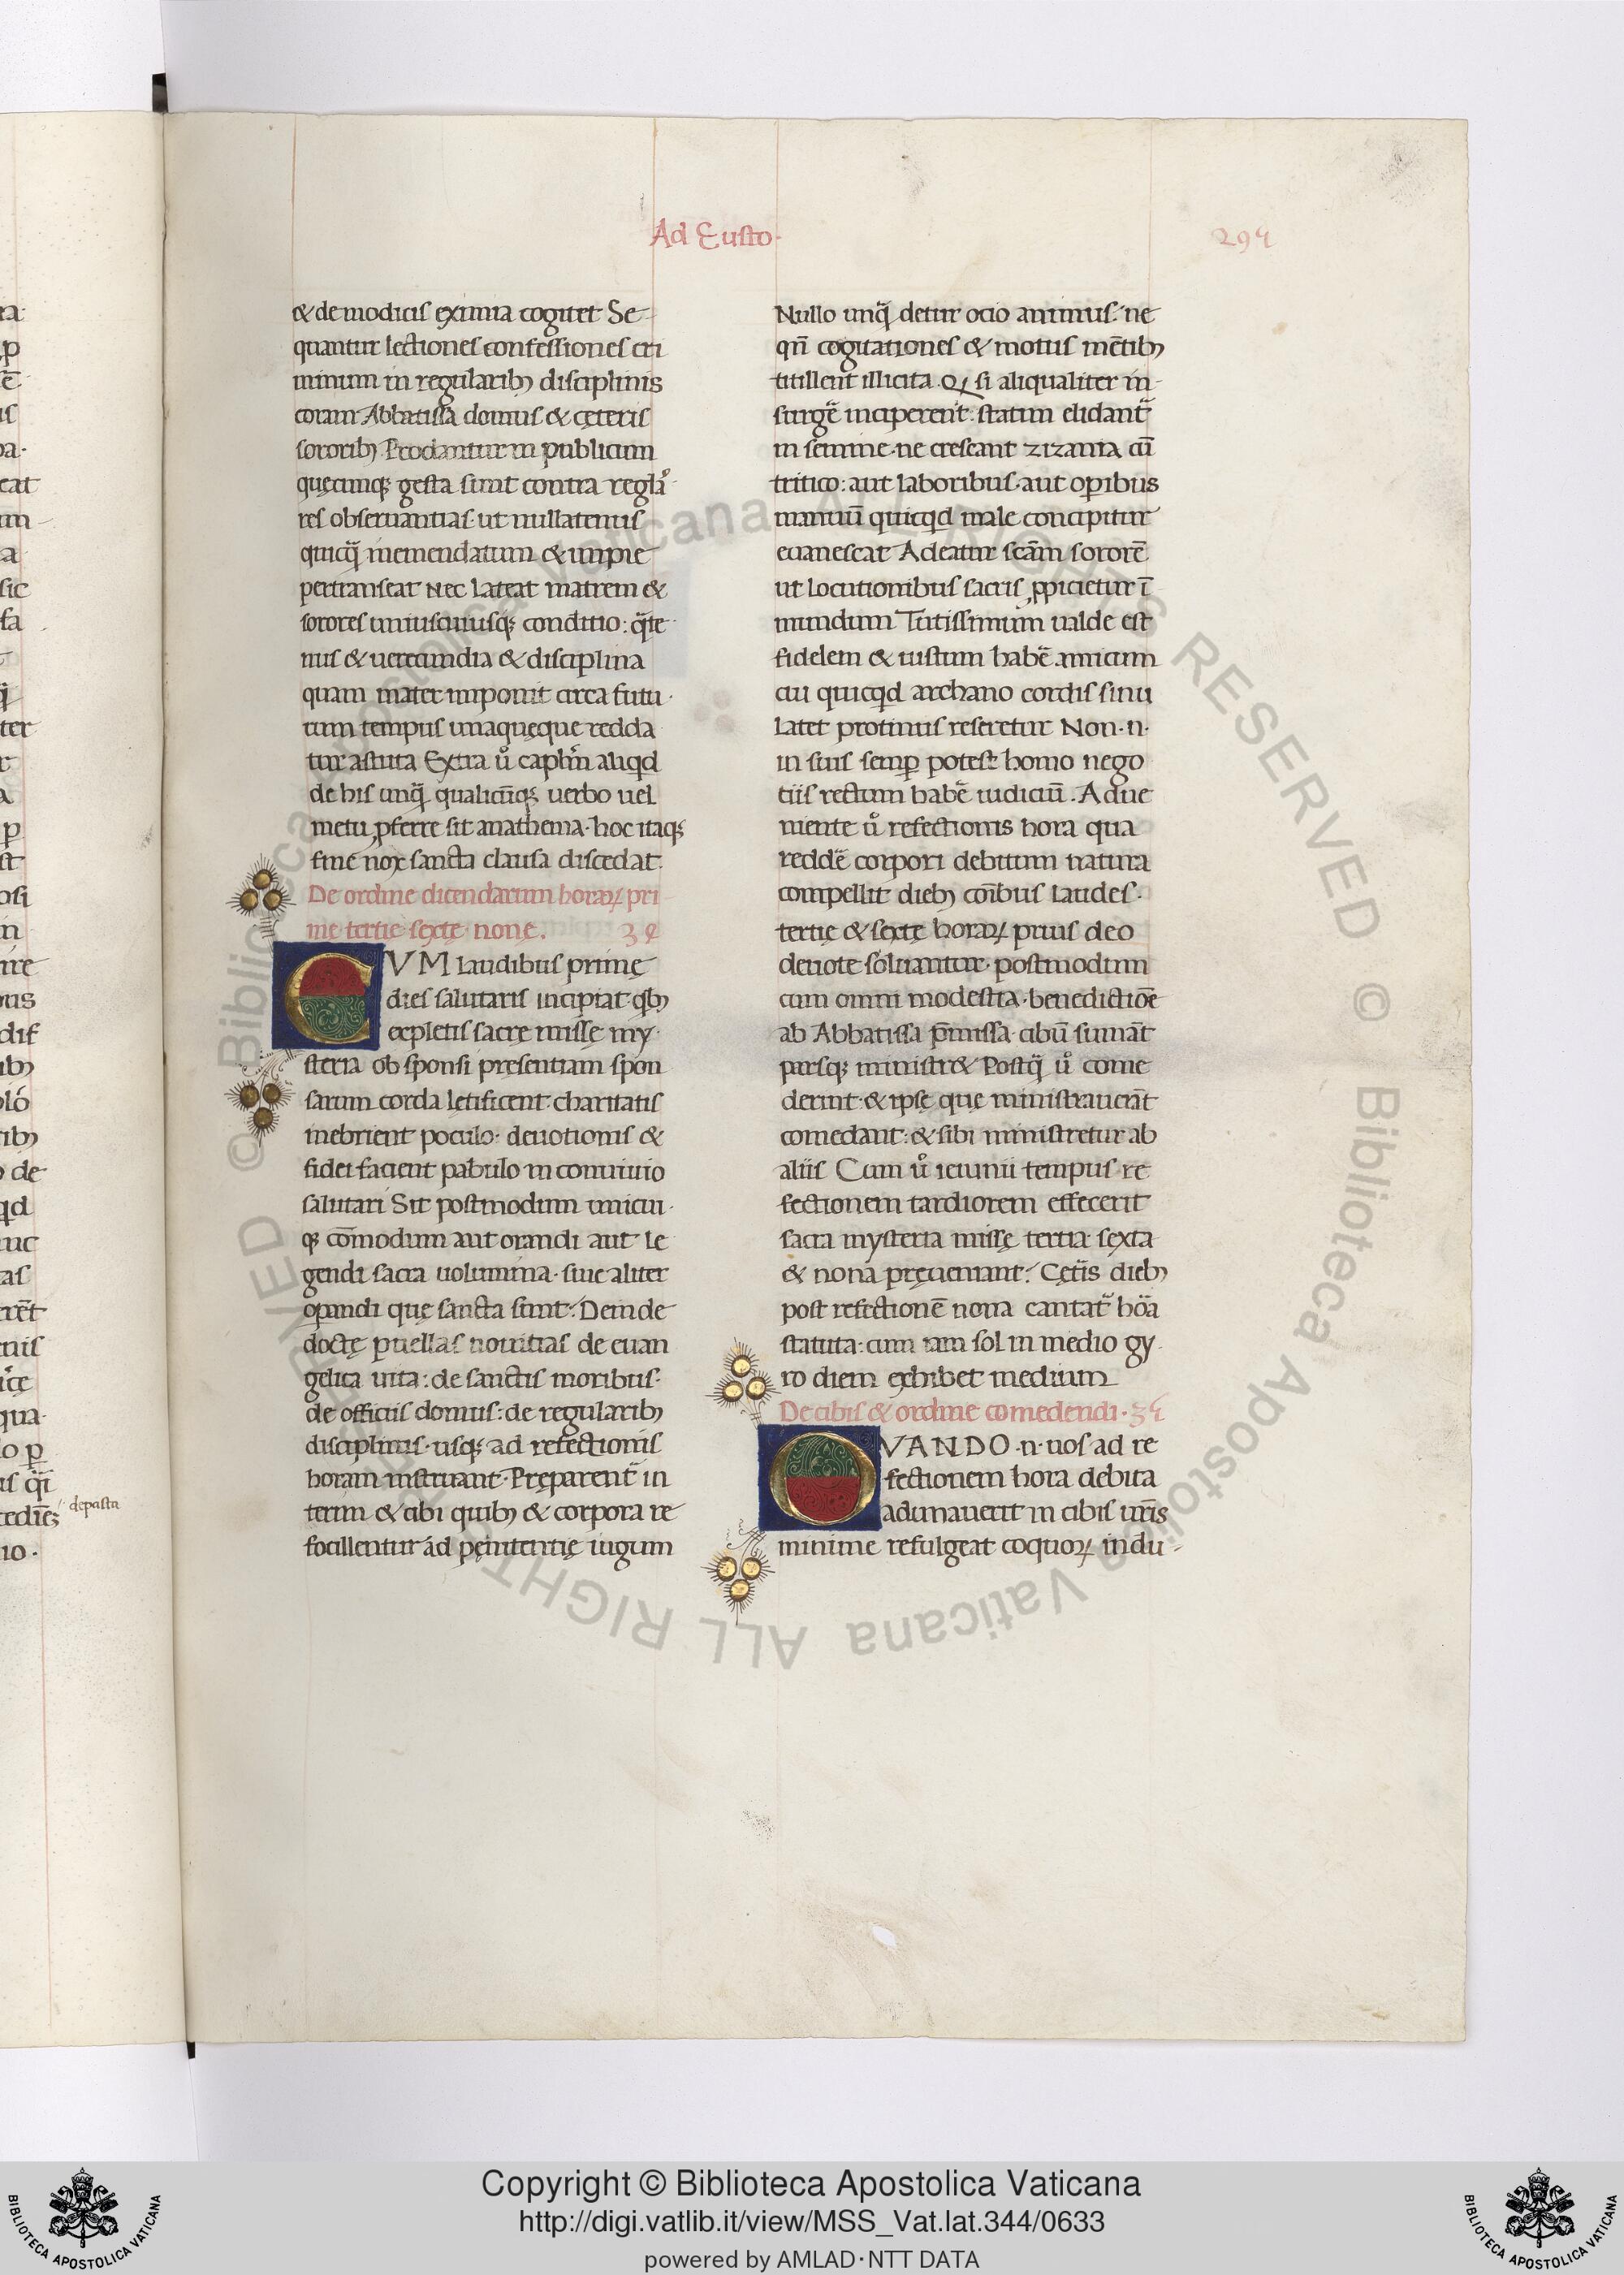 Ad Eusto·
294
& de modicis eximia cogitet Se-
quantur lectiones confessiones cri
minum in regularibꝫ disciplinis
coram Abbatissa domus & cęteris
sororibꝫ Prodantur in publicum
quęcunqꝫ gesta sunt contra regla-
res obseruantias· ut nullatenus
quicq̃ inemendatum & impie
pertranseat Nec Lateat matrem &
sorores uniuscuiusqꝫ conditio: q̃te
nus & uerecundia & disciplina
quam mater imponit circa futu·
rum tempus unaquęque redda
tur astuta Extra u̾ caplm̃ aliqd
de his unq̃ qualicũqꝫ uerbo uel
metu ꝓferre sit anathema· hoc itaqꝫ
fine nox sancta clausa discedat
De ordine dicendarum horaꝝ pri
me tertie sexte· none.
CVM laudibus primę
dies salutaris incipiat· qbꝫ
expletis sacrę missę my·
steria ob sponsi presentiam spon
sarum corda lętificent· charitatis
inebrient poculo· deuotionis &
fidei facient pabulo in conuiuio
salutari Sit postmodum unicui·
qꝫ cõmodum aut orandi aut le
gendi sacra uolumina· siue aliter
oꝑandi quę sancta sunt: Deinde
doctę puellas nouitias de euan
gelica uita: de sanctis moribus:
de officiis domus: de regularibꝫ
disciplinis· usqꝫ ad refectionis
horam instruant· Pręparent̃ in
terim & cibi quibꝫ & corpora re
focillentur ad pęnitentię iugum
Nullo unq̃ detur ocio animus: ne
qñ cogitationes & motus mẽtibꝫ
titillent illicita· Q si aliqualiter in-
surgẽ inciperent: statim elidant̃
in semine· ne crescant zizania cũ
tritico: aut laboribus· aut oꝑibus
manuũ quicqd male concipitur
euanescat Adeatur scãm sororẽ
ut locutionibus sacris ꝓpicietur ĩ
mundum Tutissimum ualde est
fidelem & iustum habẽ amicum
cui quicqd archano cordis sinu
latet protinus reseretur Non· n·
in suis semꝑ potest homo nego
tiis rectum habẽ iudiciũ. Adue
niente u̾ refectionis hora qua
reddẽ corpori debitum natura
compellit diebꝫ coĩbus laudes·
tertię & sextę horaꝝ prius deo
deuote soluantur· postmodum
cum omni modestia· benedictiõe
ab Abbatissa p̃missa· cibũ sumãt
parsqꝫ ministr& Postq̃ u̾ come
derint· & ipsę que ministrauerãt
comedant: & sibi ministretur ab
aliis Cum u̾ ieiunii tempus re
fectionem tardiorem effecerit
sacra mysteria missę tertia sexta
& nona pręueniant: Cęt̃is diebꝫ
post refectionẽ nona cantat̃ hõa
statuta: cum iam sol in medio gy·
ro diem exhibet medium
De cibis & ordine comedendi· 34
QVANDO· n· uos ad re
fectionem hora debita
adunauerit in cibis ur̃is
minime refulgeat coquoꝝ indu-
depasta
Copyright © Biblioteca Apostolica Vaticana
http://digi.vatlib.it/view/MSS_Vat.lat.344/0633
powered by AMLAD·NTT DATA
BIBLIOTECA APOSTOLICA VATICANA
BIBLIOTECA APOSTOLICA VATICANA
© Biblioteca Apostolica Vaticana ALL RIGHTS RESERVED © Biblioteca Apostolica Vaticana ALL RIGHTS RESERVED